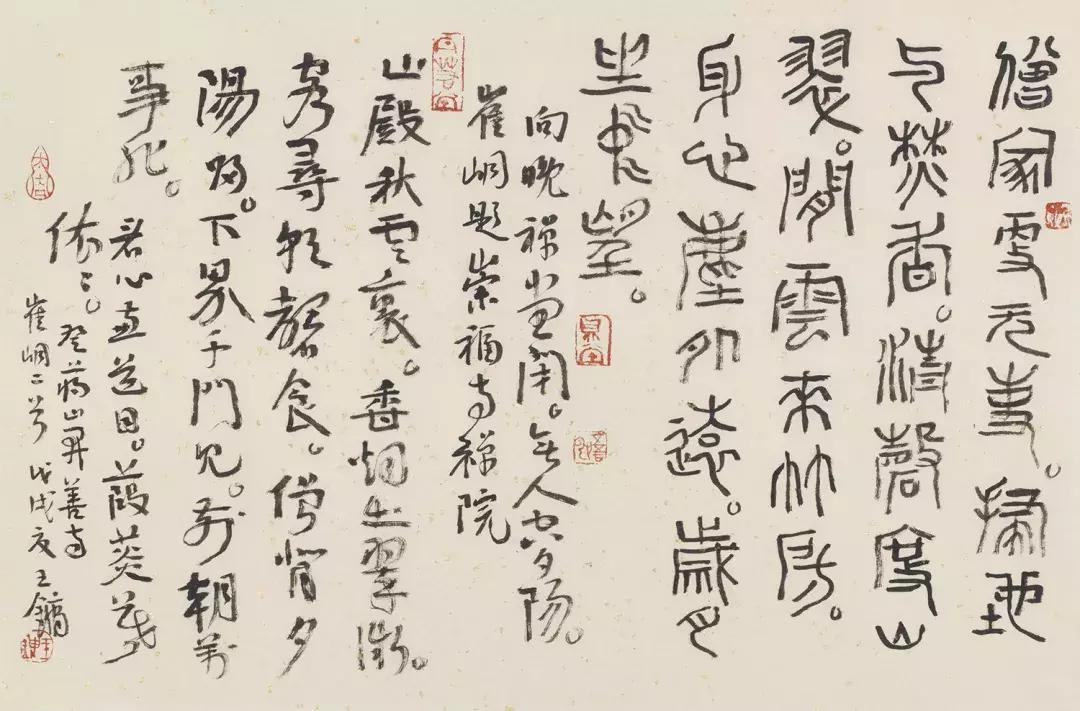 僧家无事。掃地
与焚香。清磬度山
翠。閒雲來竹房。
身心塵外遠。歲月
坐中望。
向晚禅堂閉。无人空夕陽。
崔峒題崇福寺禅院
山殿秋雲裏。香烟出翠微。
客尋朝磬食。僧背夕
陽歸。下界千門見。前朝萬
事非。
看心送目。葭菼暮
依々。登蔣山開善寺
崔峒二首 戊戌夏王鏞